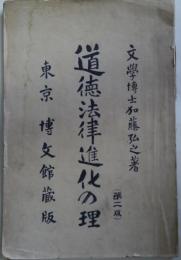 文學博士加藤弘之著
道德法律進化の理
(第二版)
東京 博文館藏版